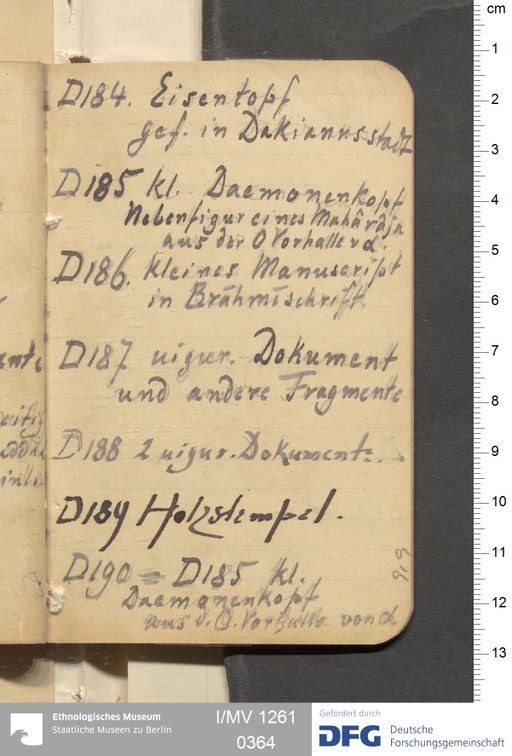 D184. Eisentopf
gef. in Dakianusstadt
D185 kl. Daemonenkopf
Nebenfigur eines Mahârâja
aus der O Vorhalle v α.
D186. kleines Manuscript
in Brāhmīschrift.
D187 uigur. Dokument
und andere Fragmente
D188 2 uigur. Dokumente.
D189 Holzstempel.
D190 = D185 kl.
Daemonenkopf
aus d. O. Vorhalle von α
cm
1
2
3
4
5
6
7
8
9
10
11
12
13
Ethnologisches Museum
Staatliche Museen zu Berlin
I/MV 1261
0364
Gefördert durch
DFG Deutsche
Forschungsgemeinschaft